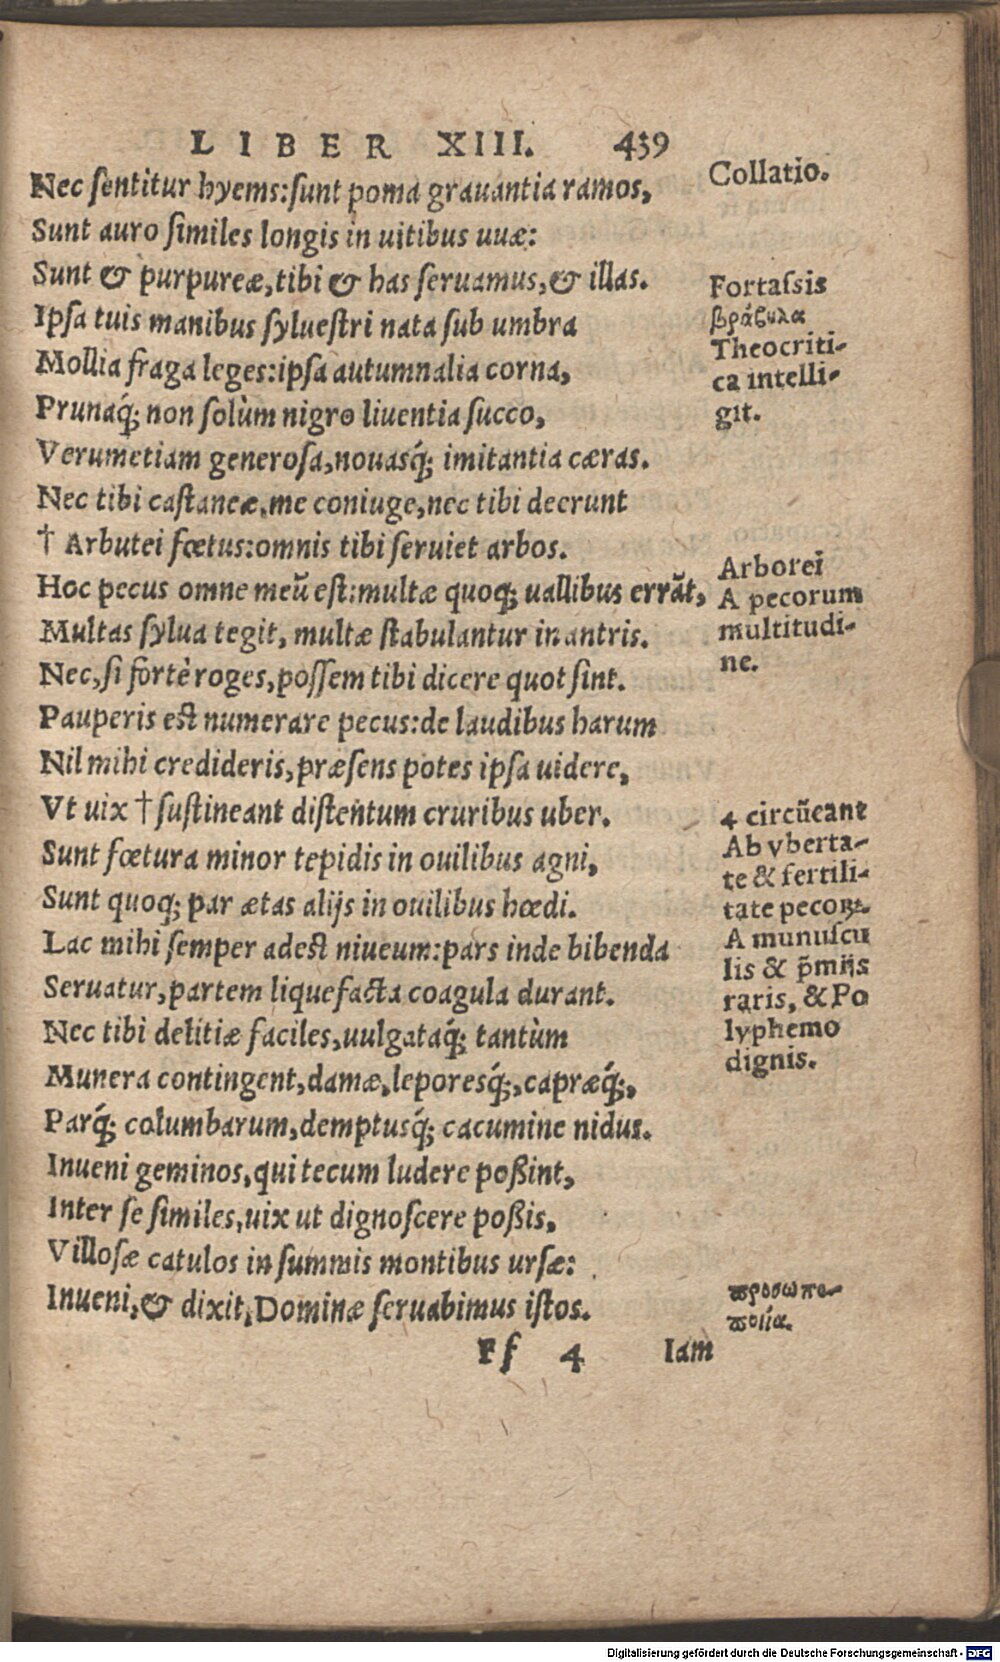 LIBER XIII. 439
Nec ſentitur hyems:ſunt poma grauantia ramos,
Sunt auro ſimiles longis in uitibus uuæ:
Sunt & purpureæ,tibi & has ſeruamus,& illas.
Ipſa tuis manibus ſylueſtri nata ſub umbra
Mollia fraga leges:ipſa autumnalia corna,
Prunaq́; non ſolùm nigro liuentia ſucco,
Verumetiam generoſa,nouasq́; imitantia cæras.
Nec tibi caſtaneæ,me coniuge,nec tibi deerunt
† Arbutei fœtus:omnis tibi ſeruiet arbos.
Hoc pecus omne meũ eſt:multæ quoq; uallibus errãt,
Multas ſylua tegit, multæ ſtabulantur in antris.
Nec,ſi fortè roges,poſſem tibi dicere quot ſint.
Pauperis eſt numerare pecus:de laudibus harum
Nil mihi credideris,præſens potes ipſa uidere,
Vt uix † ſuſtineant diſtentum cruribus uber.
Sunt fœtura minor tepidis in ouilibus agni,
Sunt quoq; par ætas alijs in ouilibus hœdi.
Lac mihi ſemper adeſt niueum:pars inde bibenda
Seruatur,partem liquefacta coagula durant.
Nec tibi delitiæ faciles,uulgataq́; tantùm
Munera contingent,damæ,leporesq́;,capræq́;,
Parq́; columbarum,demptusq́; cacumine nidus.
Inueni geminos,qui tecum ludere poßint,
Inter ſe ſimiles,uix ut dignoſcere poßis,
Villoſæ catulos in ſummis montibus urſæ:
Inueni,& dixit,Dominæ ſeruabimus iſtos.
Ff 4 Iam
Collatio.
Fortaſsis
βράβυλα
Theocriti-
ca intelli-
git.
Arborei
A pecorum
multitudi-
ne.
4 circũeant
Ab vberta-
te & fertili-
tate pecoꝝ.
A munuſcu
lis & p̃mijs
raris, & Po
lyphemo
dignis.
ϖροσωπο-
ϖοιία.
Digitalisierung gefördert durch die Deutsche Forschungsgemeinschaft - DFG